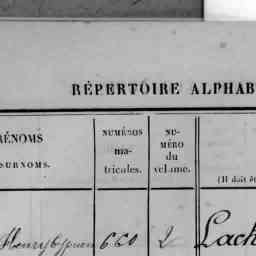 RÉPERTOIRE ALPHAB
RÉNOMS
SURNOMS.
NUMÉROS
ma-
tricules.
NU-
MÉRO
du
volume.
(Il doit êt
Henry 660 2 Lach